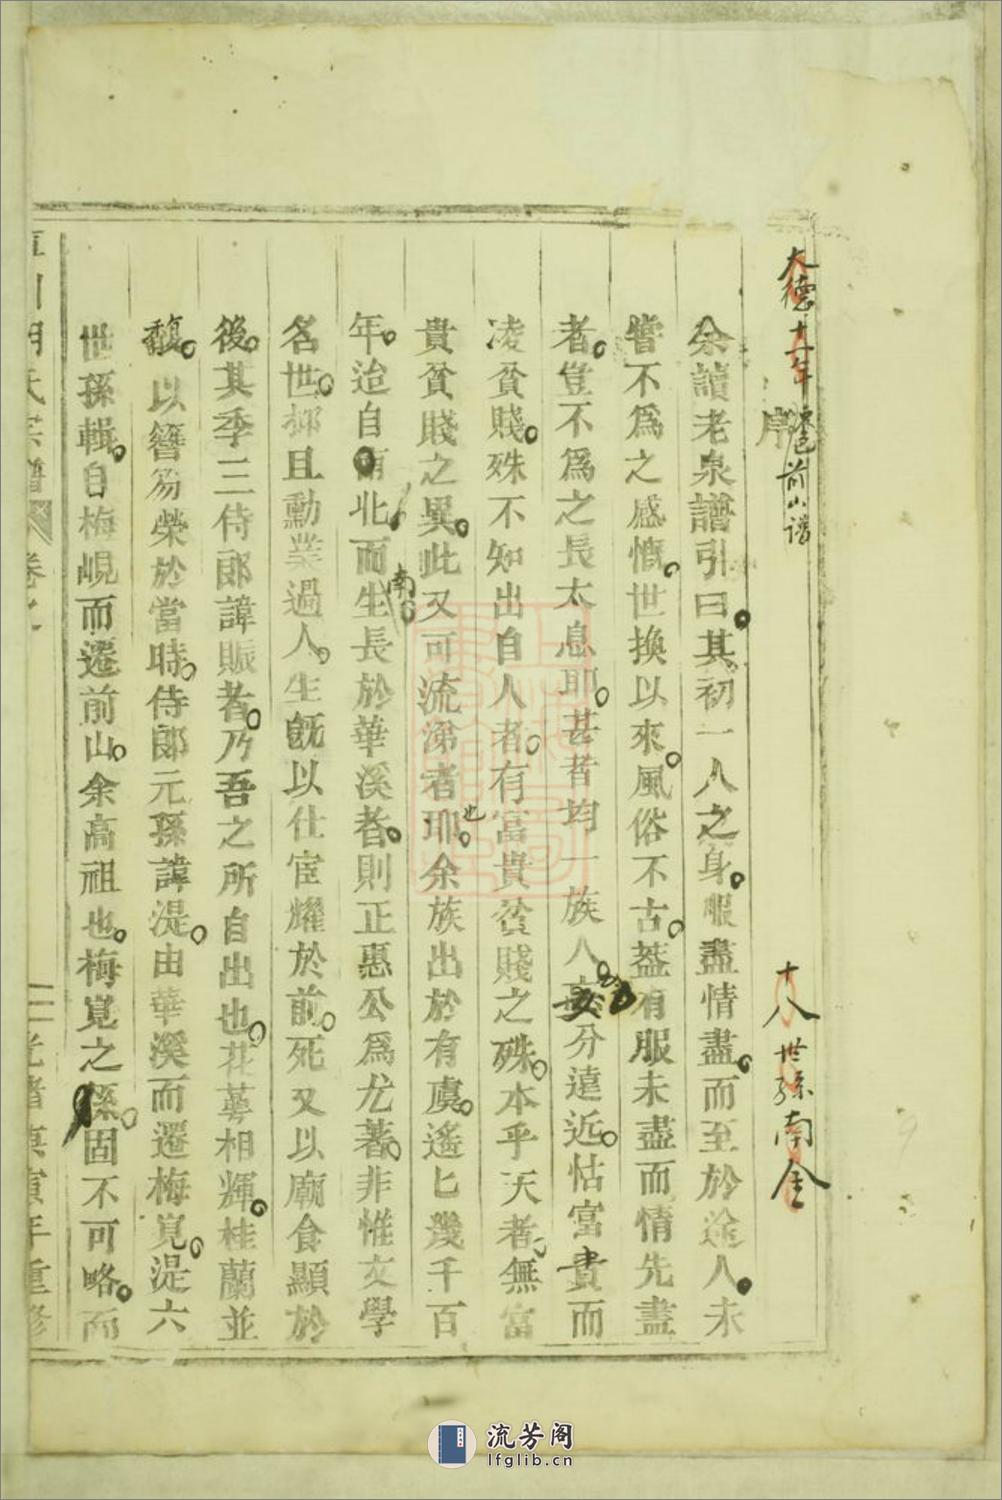 大德十一年 前山谱 十八世孫南金
序
余讀老泉譜引曰其初一人之身服盡情盡而至於途人未
嘗不爲之感慨世換以來風俗不古葢有服未盡而情先盡
者豈不爲之長太息耶甚者均一族人妄分遠近怙富貴而
凌貧賤殊不知出自人者有富貴貧賤之殊本乎天者無富
貴貧賤之異此又可流涕者耶也余族出於有虞遙匕幾千百
年迨自南北而南生長於華溪者則正惠公爲尤著非惟文學
名世抑且勳業過人生旣以仕宦耀於前死又以廟食顯於
後其季三侍郎諱賑者乃吾之所自出也花萼相輝桂蘭並
馥以簪笏榮於當時侍郎元孫諱湜由華溪而遷梅峴湜六
世孫輯自梅峴而遷前山余高祖也梅峴之孫固不可略而
川胡氏宗譜 卷之 二 光緒庚寅年重修
流芳阁
lfglib.cn